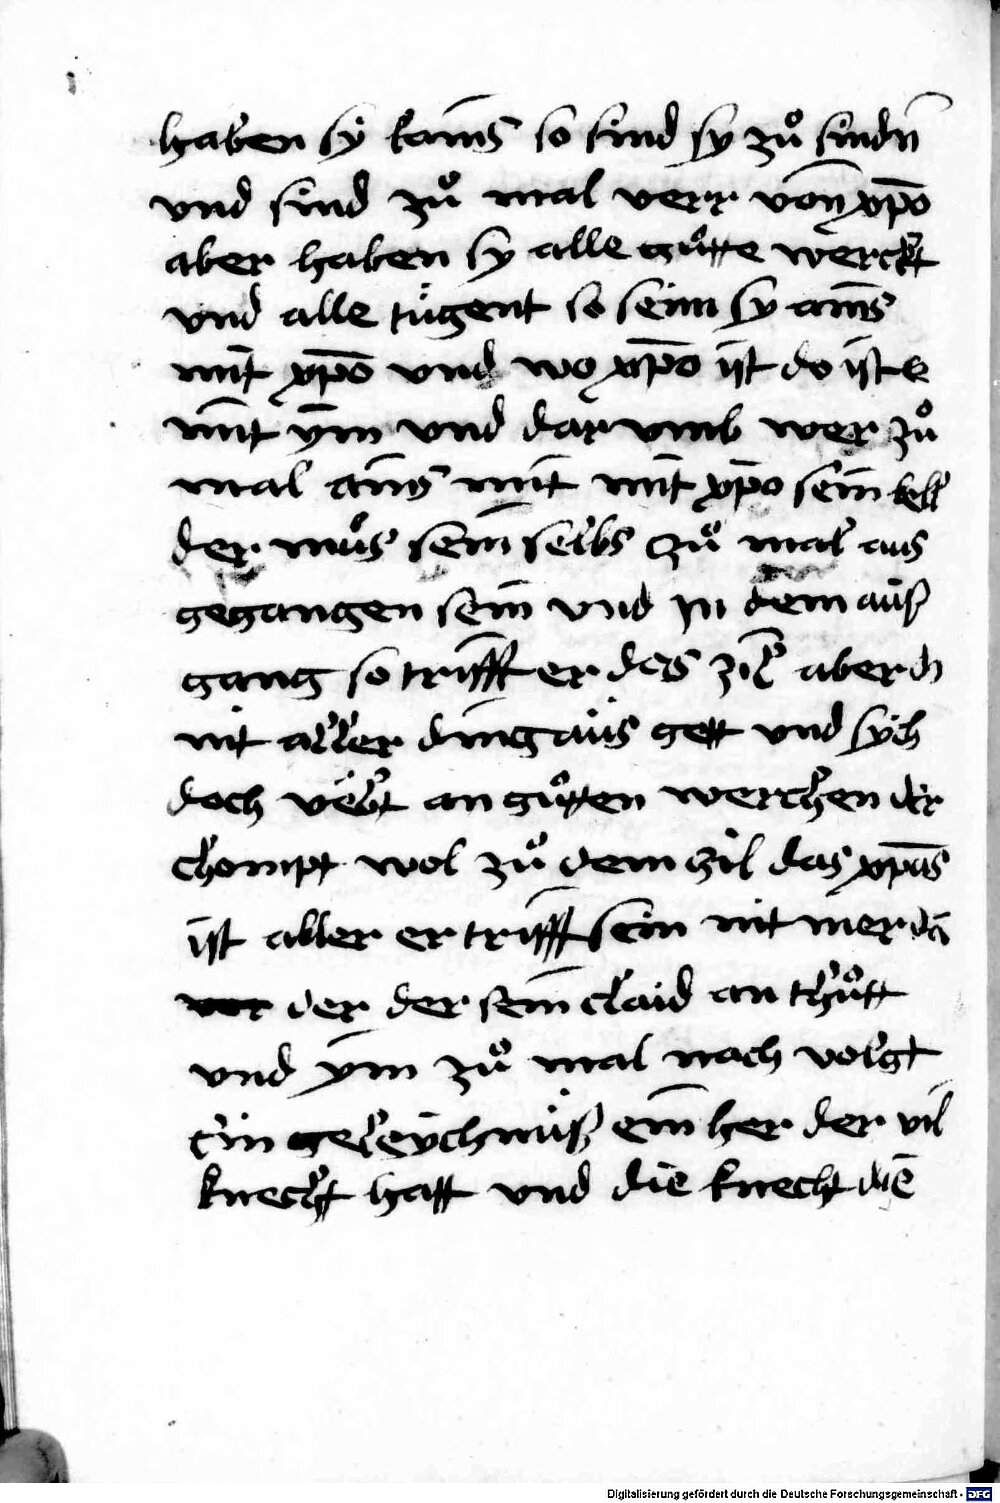 haben sy kains so sind sy zů sindn̄
vnd sind zů mal verr von xp̄o
aber haben sy alle gůtte werckt
vnd alle tugent so seinn sy ains
mit xp̄o vnd wo xp̄o ist do ist e
mit ym vnd dar vmb wer zů
mal ains mit mit xp̄o sein
der můs sein selbs zů mal aus
gegangen sein vnd in dem auß
gang so trifft er des zil aber
nit aller ding aus gett vnd sych
doch vebt an gůtten werchen der
chompt wol zů dem zil das xp̄us
ist aber er trifft sein nit mer dā
der der sein claid an thůtt
vnd ym zů mal nach volgt
Ein geleychnuß ein her der vil
knecht hatt vnd die knecht
Digitalisierung gefördert durch die Deutsche Forschungsgemeinschaft - DFG